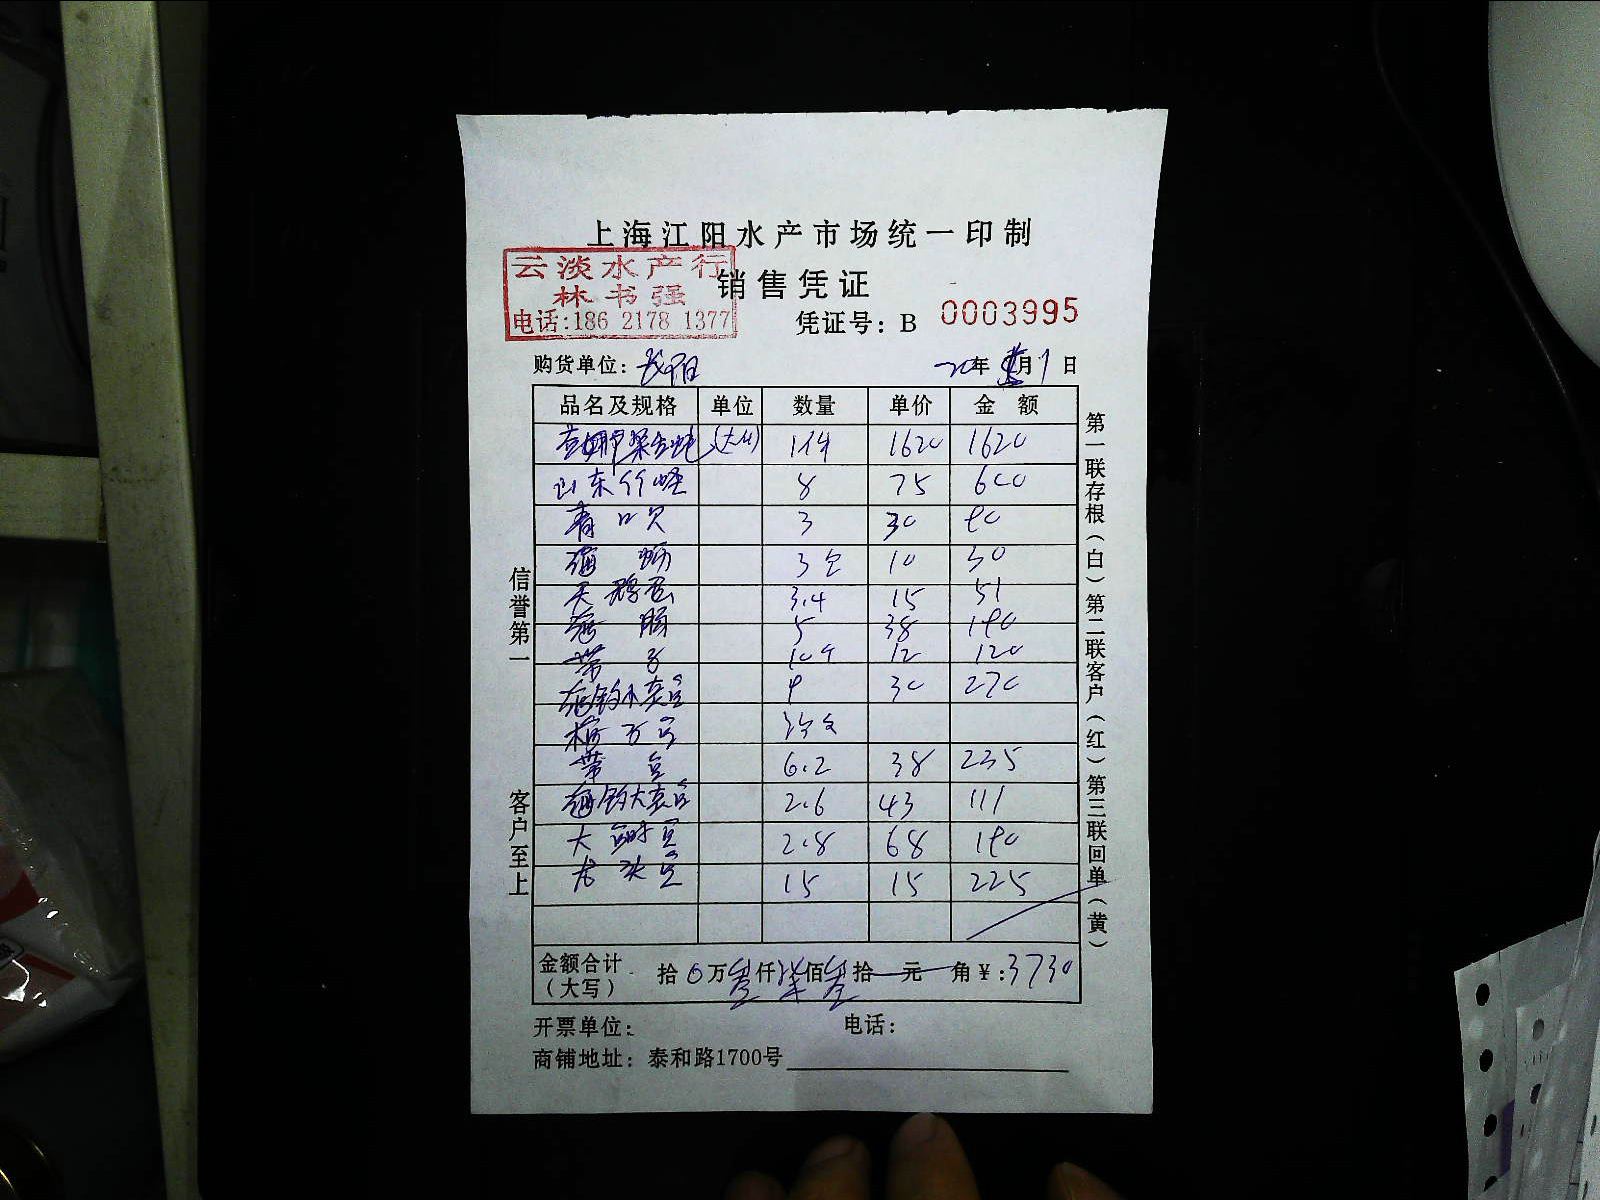 上海江阳水产市场统一印制
云淡水产行
林书强
电话:186 2178 1377
销售凭证
凭证号: B 0003995
购货单位: 年 月 日
品名及规格 单位 数量 单价 金 额
1件 1620 1620
山东竹蛏 8 75 600
青口贝 3 30 90
海蛎 3 10 30
天鹅蛋 3.4 15 51
5 38 190
带子 10个 12 120
9 30 270
带鱼 6.2 38 235
海钓大黄鱼 2.6 43 111
大 鱼 2.8 68 190
龙头鱼 15 15 225
金额合计(大写) 拾 0 万 叁 仟 柒 佰 叁 拾 元 角 ¥:3730
开票单位: 电话:
商铺地址: 泰和路1700号
信誉第一 客户至上
第一联存根(白)第二联客户(红)第三联回单(黄)